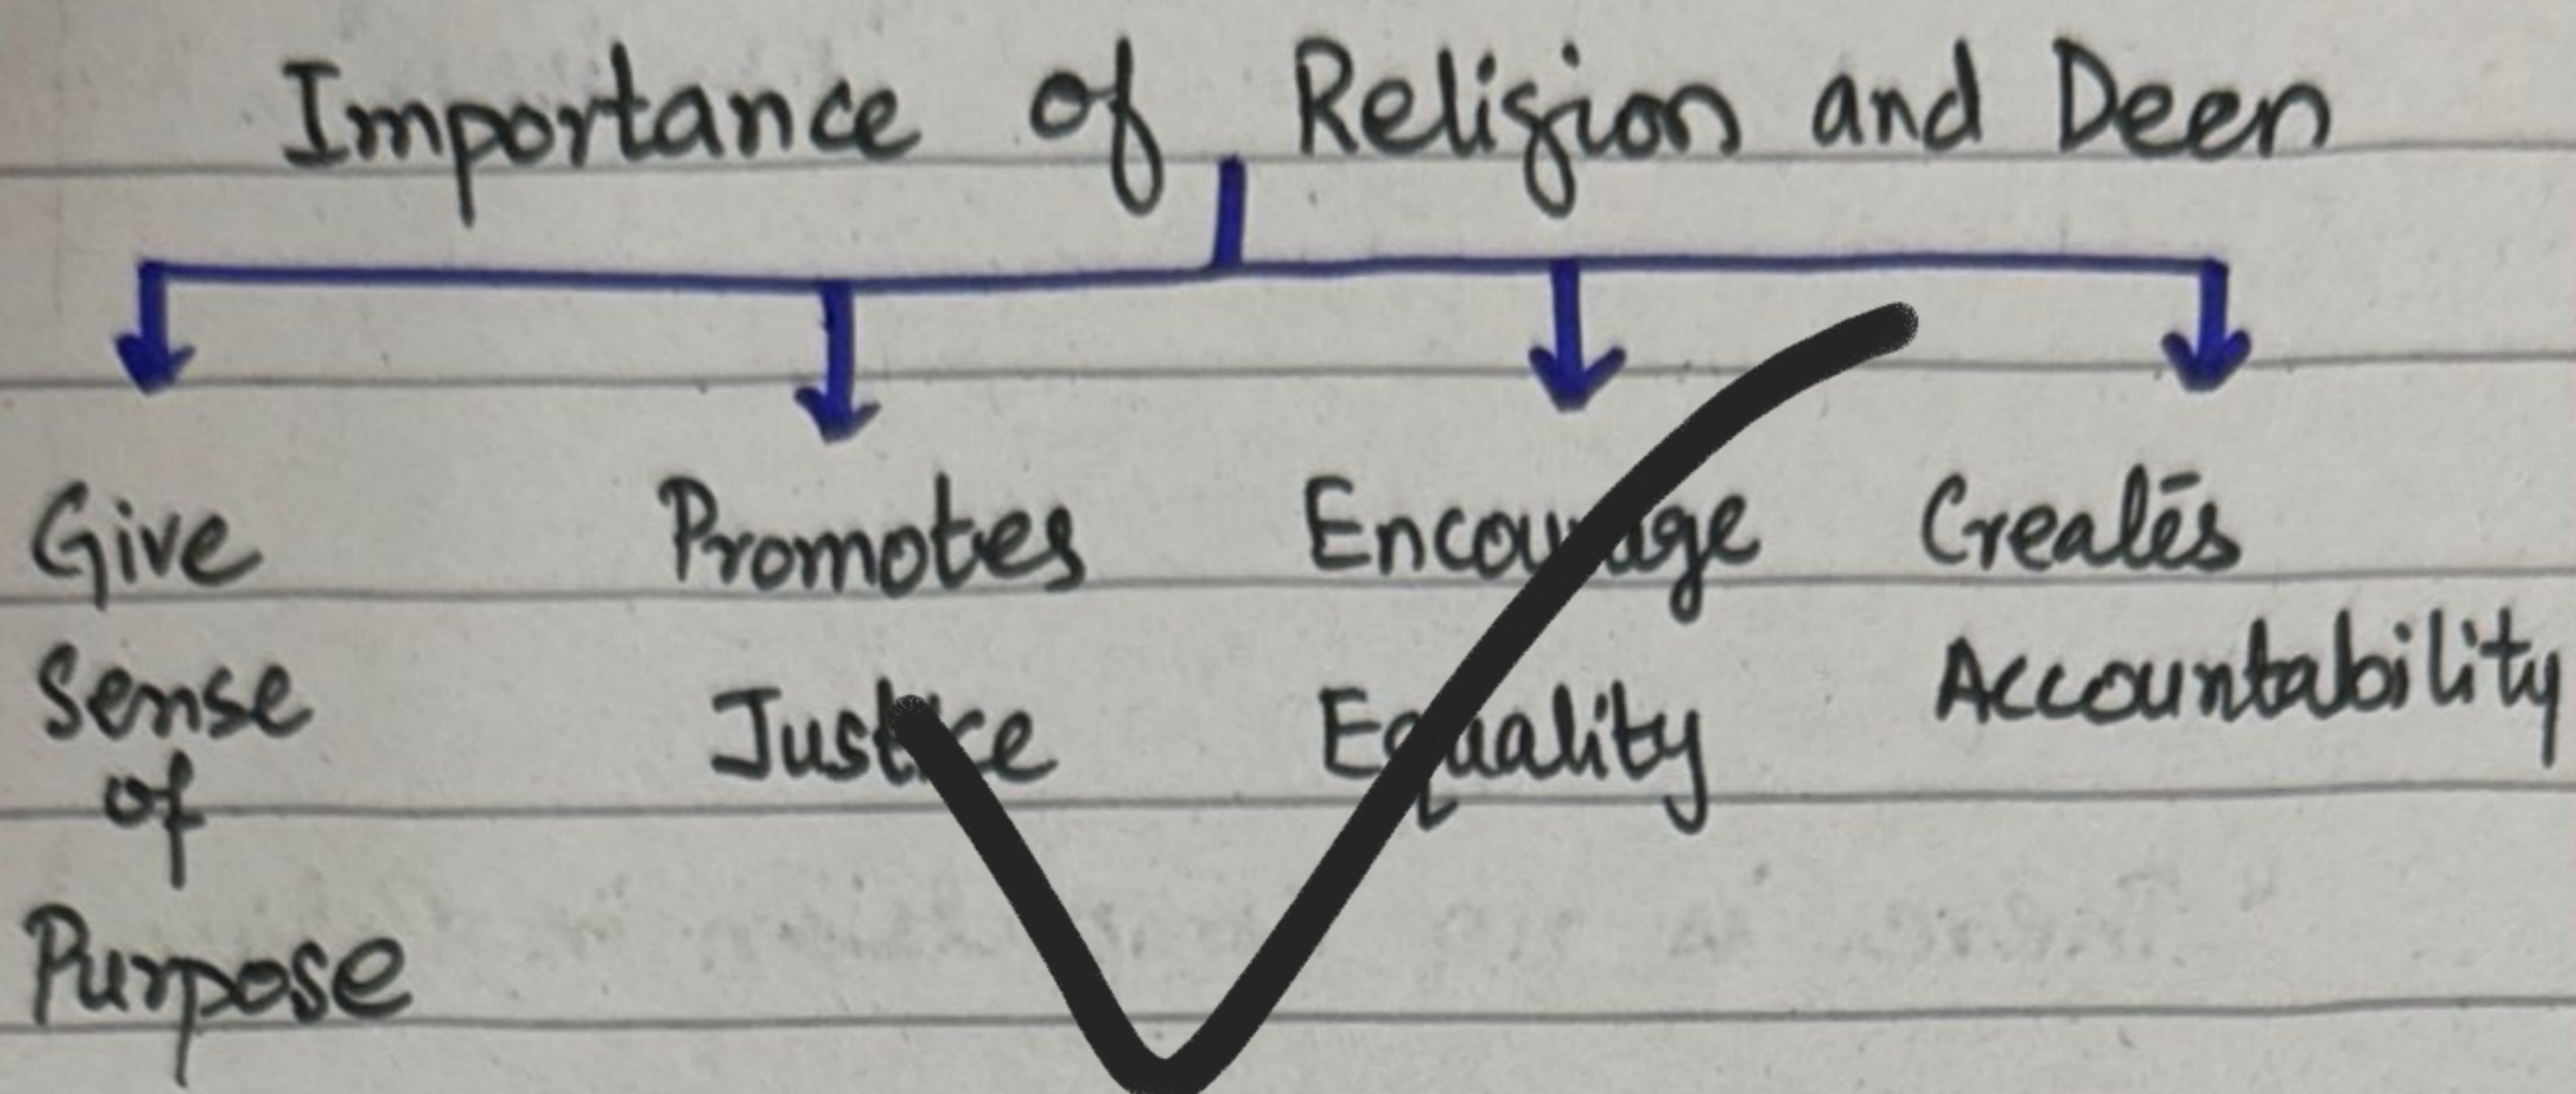 Importance of Religion and Deen
Give
Sense
of
Purpose
Promotes
Justice
Encourage
Equality
Creates
Accountability